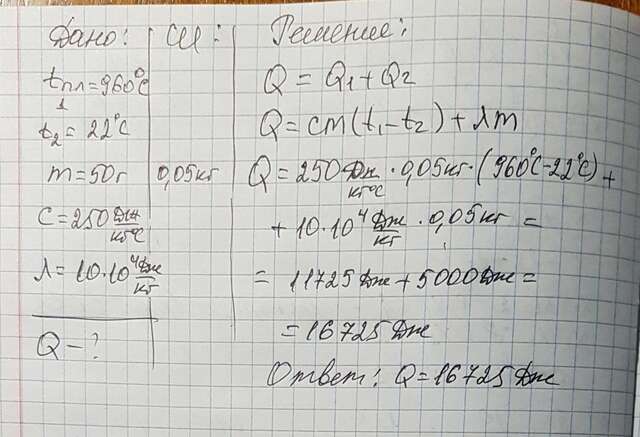 Дано: СИ:
tпл1=960°C
t2=22°C
m=50г 0,05кг
C=250 Дж/кг°C
λ=10·10⁴ Дж/кг
Q-?
Решение:
Q=Q1+Q2
Q=cm(t1-t2)+λm
Q=250 Дж/кг°C·0,05кг·(960°C-22°C)+
+10·10⁴ Дж/кг·0,05кг=
=11725Дж+5000Дж=
=16725Дж
Ответ: Q=16725Дж